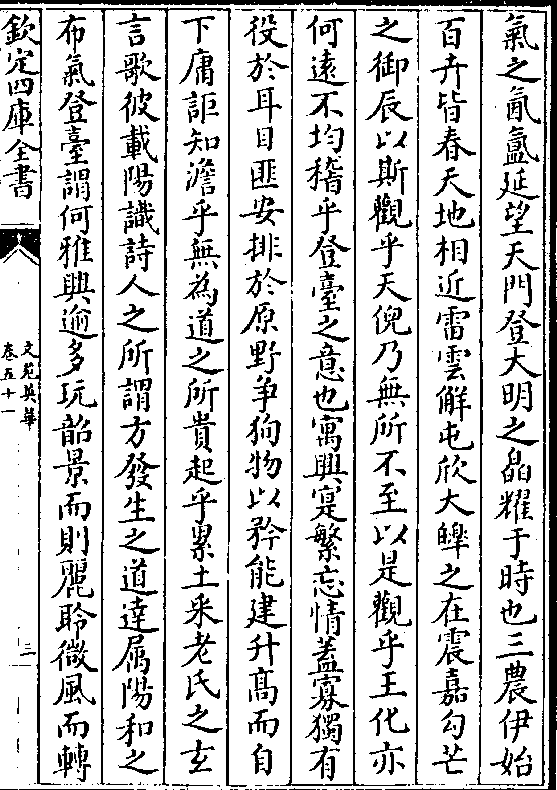 氣之氤氳延望天門登大明之晶耀于時也三農伊始
百卉皆春天地相近雷雲解屯欣大皥之在震嘉勾芒
之御辰以斯觀乎天倪乃無所不至以是觀乎王化亦
何遠不均稽乎登臺之意也寓興寔繁忘情蓋寡獨有
役於耳目匪安排於原野爭狥物以矜能建升髙而自
下庸詎知澹乎無為道之所貴起乎累土乎老氏之玄
言歌彼載陽識詩人之所謂方發生之道達属陽和之
布氣登臺謂何雅興逾多玩韶景而則麗聆微風而轉
欽定四庫全書
文苑英華
卷五十一
三